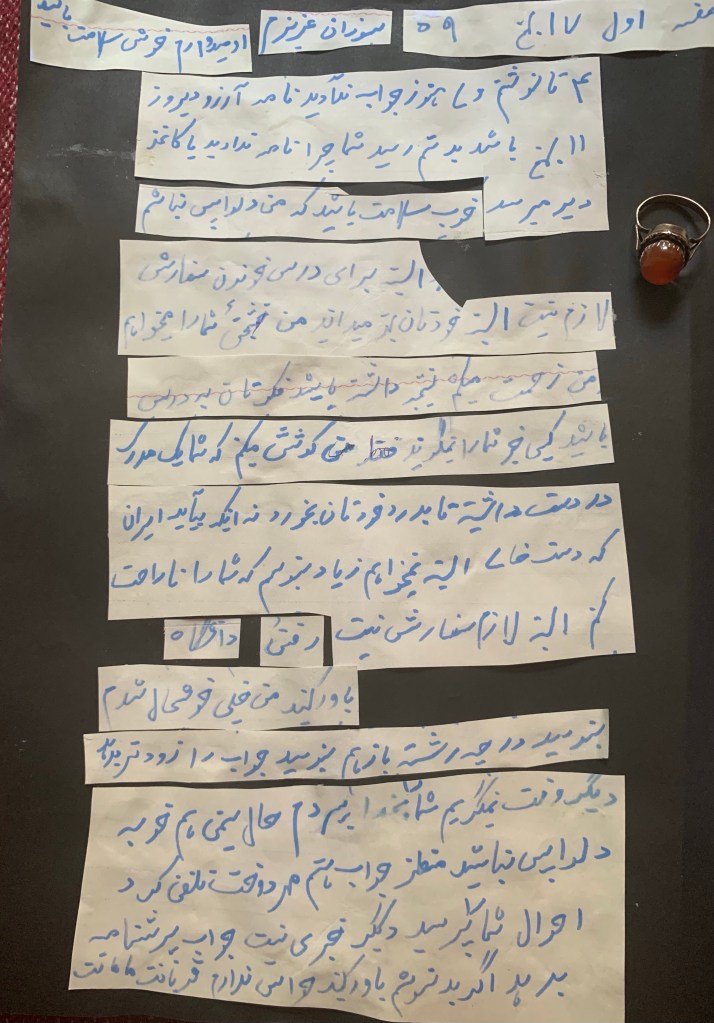 صفحه اول ۱۷ بهمن ۵۹ مهوران عزیزم امیدوارم خوش سلامت باشید
۴ تا نوشتم ولی هنوز جواب نیآمدید نامه آرزو دیروز
۱۱ بهمن باشد بدستم رسید شما چرا نامه ندادید یا کاغذ
دیر میرسد خوب سلامت باشید که من دلواپس نباشم
البته برای درس خوندن سفارش
لازم نیست البته خودتان بهتر میدانید من خوشبختی شما را میخواهم
من زحمت میکشم نتیجه داشته باشد فکرتان به درس
باشید کسی خبر شما را نمیگوید فقط من کوشش میکنم که شما یک مدرک
در دست داشته تا بدرد خودتان بخورد نه اینکه بیآید ایران
که دست خالی البته نمیخواهم زیاد بنویسم که شما را ناراحت
کنم البته لازم سفارش نیست رفتی دانشگاه
باور کنید من خیلی خوشحال شدم
بنویسید در چه رشته باز هم بنویسید جواب را زودتر بدهید
دیگر وقت نمیگیریم شما بخدا میسپردم حال بیژن هم خوبه
دلواپس نباشید منتظر جواب هستم هر وقت تلفن کرد
احوال شما پرسید دیگر خبری نیست جواب پرشتنامه
بدهید اگر بد نوشتم باور کنید حواس ندارم قربانت مامانت